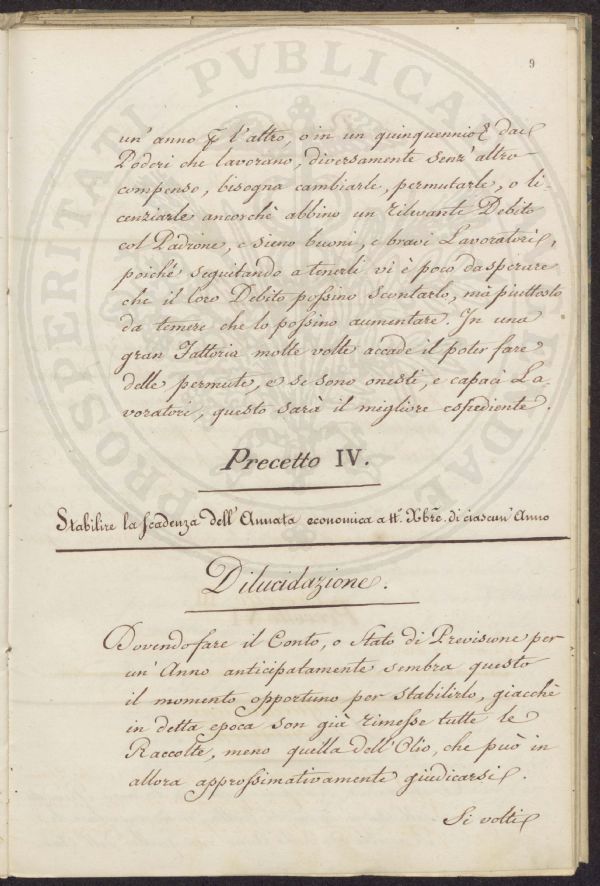 9
un' anno ꝑ l'altro, o in un quinquennio dai
Poderi che lavorano, diversamente senz' altro
compenso, bisogna cambiarle, permutarle, o li-
cenziarle ancorchè abbino un rilevante Debito
col Padrone, e sieno buoni, e bravi Lavoratori,
poiché seguitando a tenerli vi è poco da sperare
che il loro Debito possino scontarlo, mà piuttosto
da temere che lo possino aumentare. In una
gran Fattoria molte volte accade il poter fare
delle permute, e se sono onesti, e capaci La-
voratori, questo sarà il migliore espediente.
Precetto IV.
Stabilire la scadenza dell' Annata economica a tt.º Xbre. di ciascun' Anno
Dilucidazione.
Dovendo fare il Conto, o Stato di Previsione per
un' Anno anticipatamente sembra questo
il momento opportuno per stabilirlo, giacchè
in detta epoca son già rimesse tutte le
Raccolte, meno quella dell' Olio, che può in
allora approssimativamente giudicarsi.
Si volti
PROSPERITATI PVBLICAE AVGENDAE